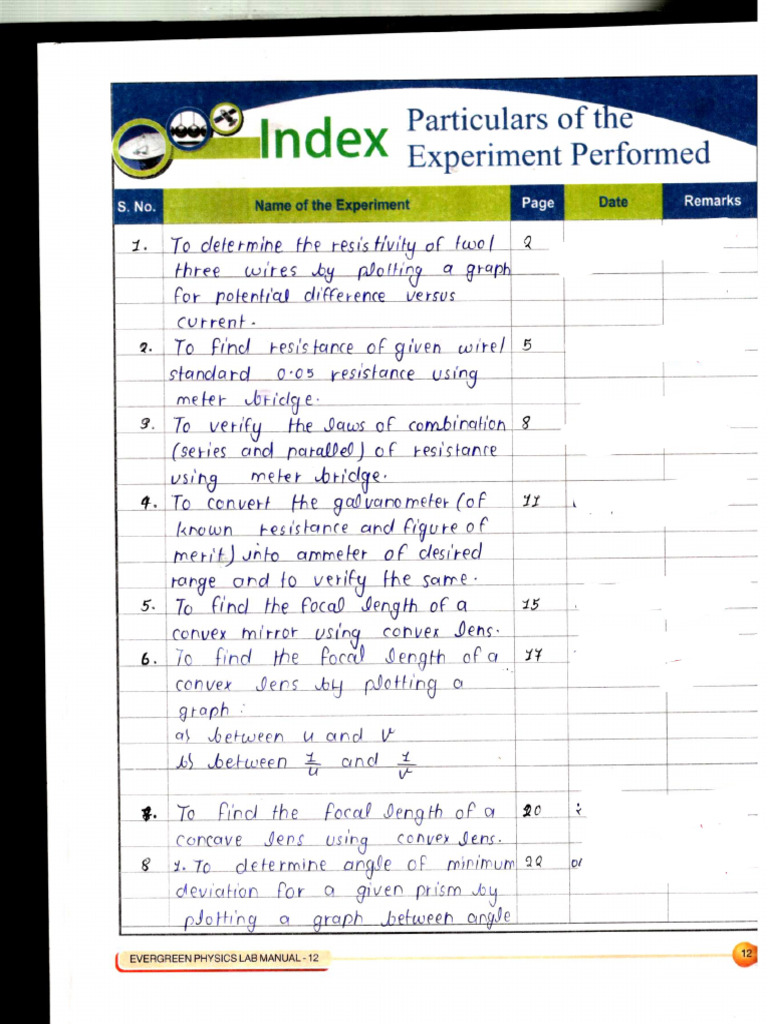 Index
Particulars of the
Experiment Performed
S. No. Name of the Experiment Page Date Remarks
1. To determine the resistivity of two/ 2
three wires by plotting a graph
for potential difference versus
current.
2. To find resistance of given wire/ 5
standard 0.05 resistance using
meter bridge.
3. To verify the laws of combination 8
(series and parallel) of resistance
using meter bridge.
4. To convert the galvanometer (of 11
known resistance and figure of
merit) into ammeter of desired
range and to verify the same.
5. To find the focal length of a 15
convex mirror using convex lens.
6. To find the focal length of a 17
convex lens by plotting a
graph:
a) between u and v
b) between 1/u and 1/v
7. To find the focal length of a 20
concave lens using convex lens.
8 1. To determine angle of minimum 22
deviation for a given prism by
plotting a graph between angle
EVERGREEN PHYSICS LAB MANUAL - 12
12